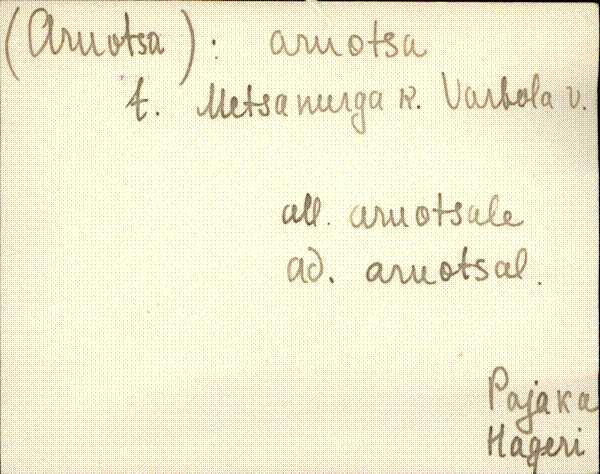 (Aruotsa): aruotsa
t. Metsanurga k. Varbola v.
all. aruotsale
ad. aruotsal.
Pajaka
Hageri